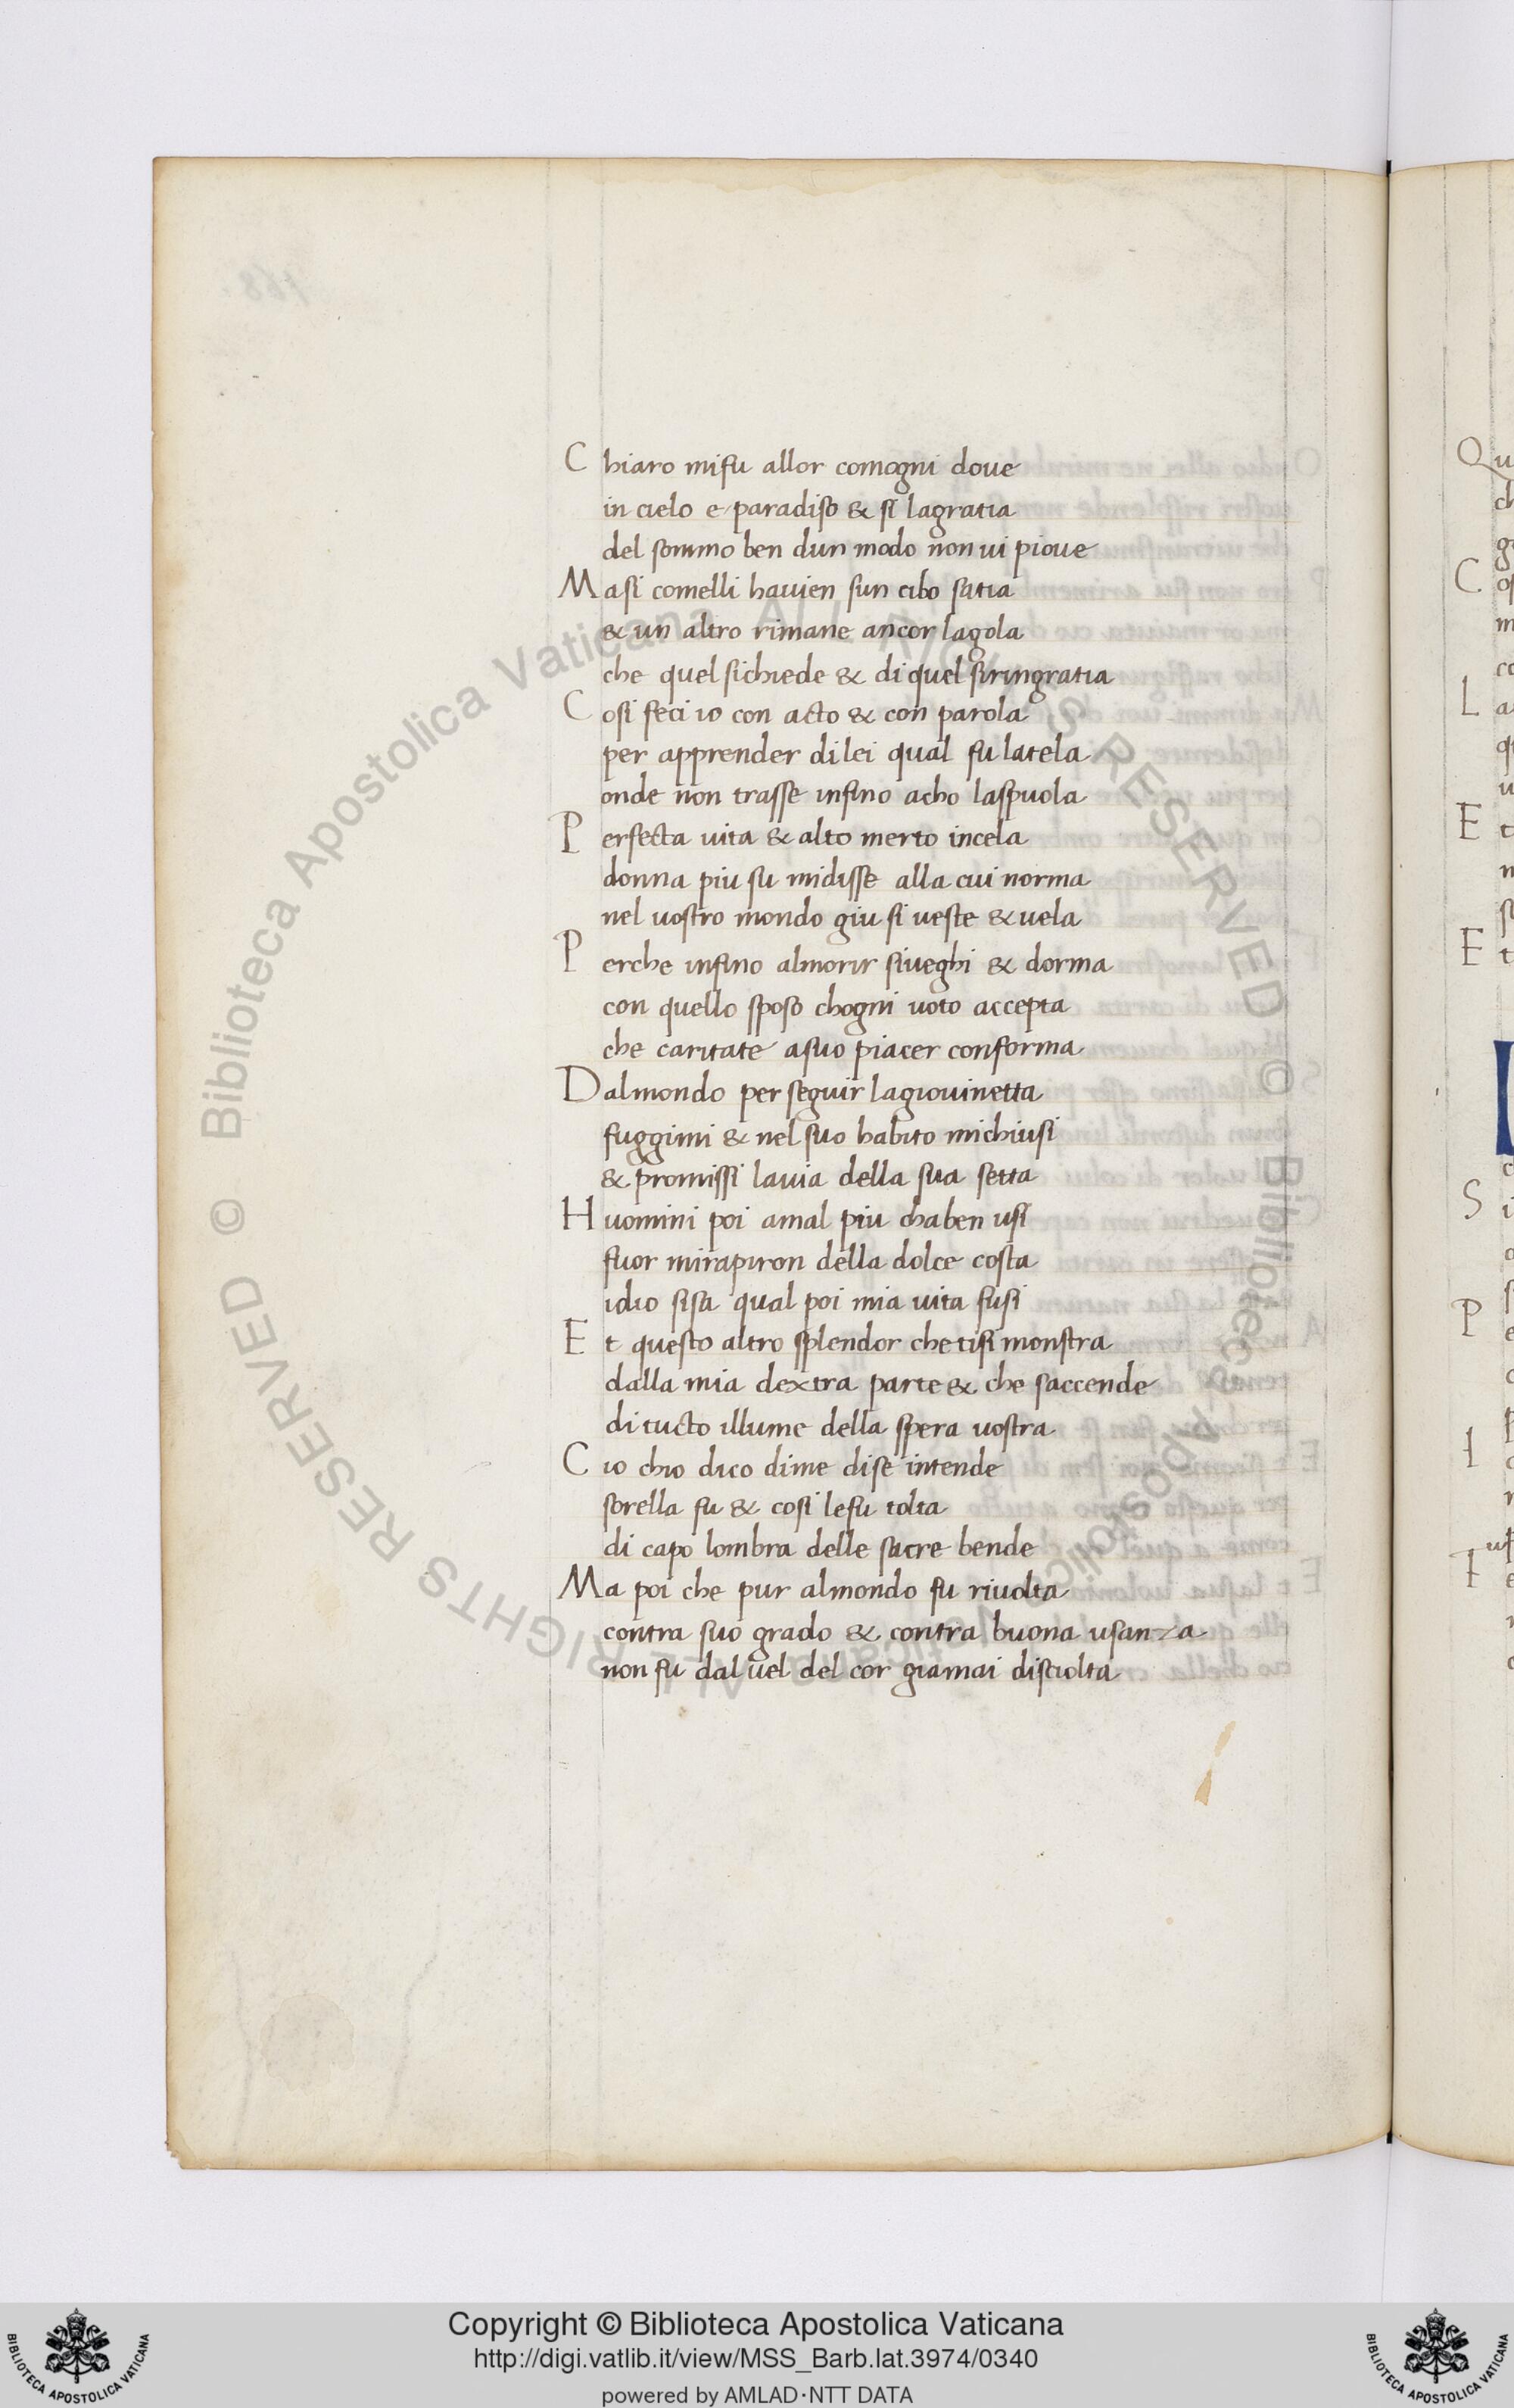 Chiaro mifu allor comogni doue
in cielo e paradiso & si lagratia
del sommo ben dun modo non ui pioue
Masi comelli hauien sun cibo satia
& un altro rimane ancor lagola
che quel sichiede & di quel siringratia
Cosi feci io con acto & con parola
per apprender dilei qual fu latela
onde non trasse infino acho laspuola
Perfecta uita & alto merto incela
donna piu su midisse alla cui norma
nel uostro mondo giu si ueste & uela
Perche infino almorir siueghi & dorma
con quello sposo chogni uoto accepta
che caritate asuo piacer conforma
Dalmondo per seguir lagiouinetta
fuggimi & nel suo habito michiusi
& promissi lauia della sua setta
Huomini poi amal piu chaben usi
fuor mirapiron della dolce costa
idio sisa qual poi mia uita fusi
Et questo altro splendor chetisi monstra
dalla mia dextra parte & che saccende
di tucto illume della spera uostra
Cio chio dico dime dise intende
sorella fu & cosi lefu tolta
di capo lombra delle sacre bende
Ma poi che pur almondo fu riuolta
contra suo grado & contra buona usanza
non fu dal uel del cor giamai disciolta
Copyright © Biblioteca Apostolica Vaticana
http://digi.vatlib.it/view/MSS_Barb.lat.3974/0340
powered by AMLAD·NTT DATA